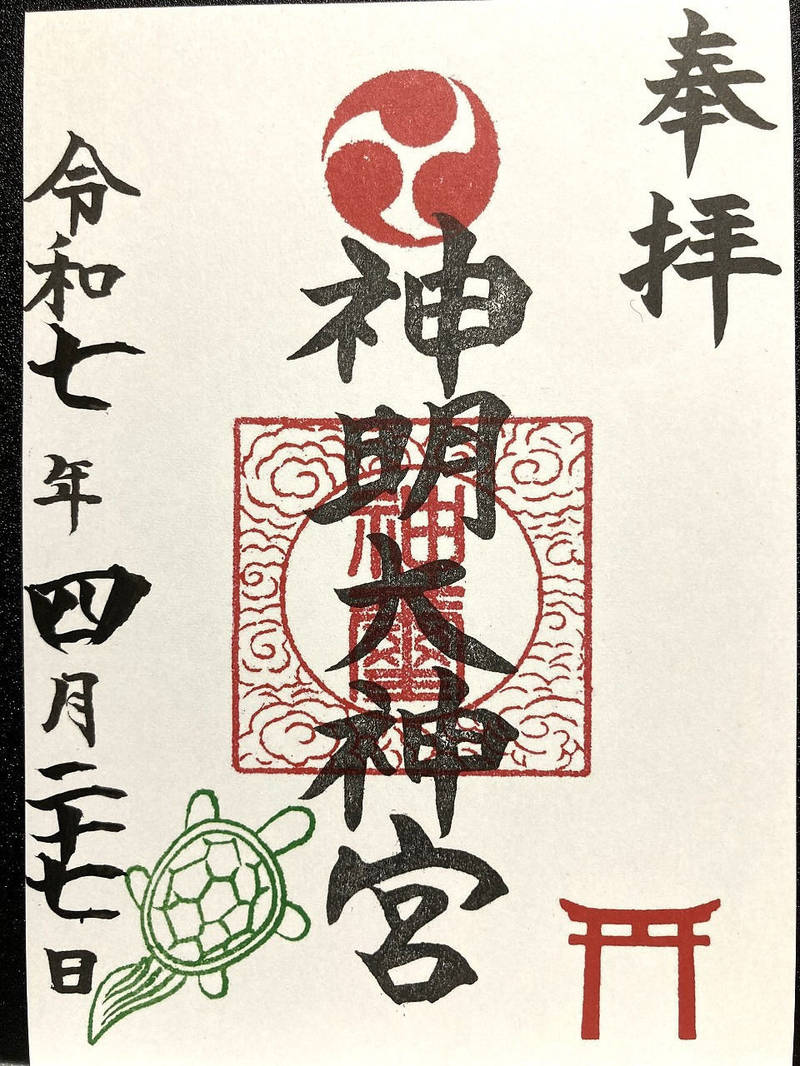 奉拝
神明大神宮
神璽
令和七年四月二十七日